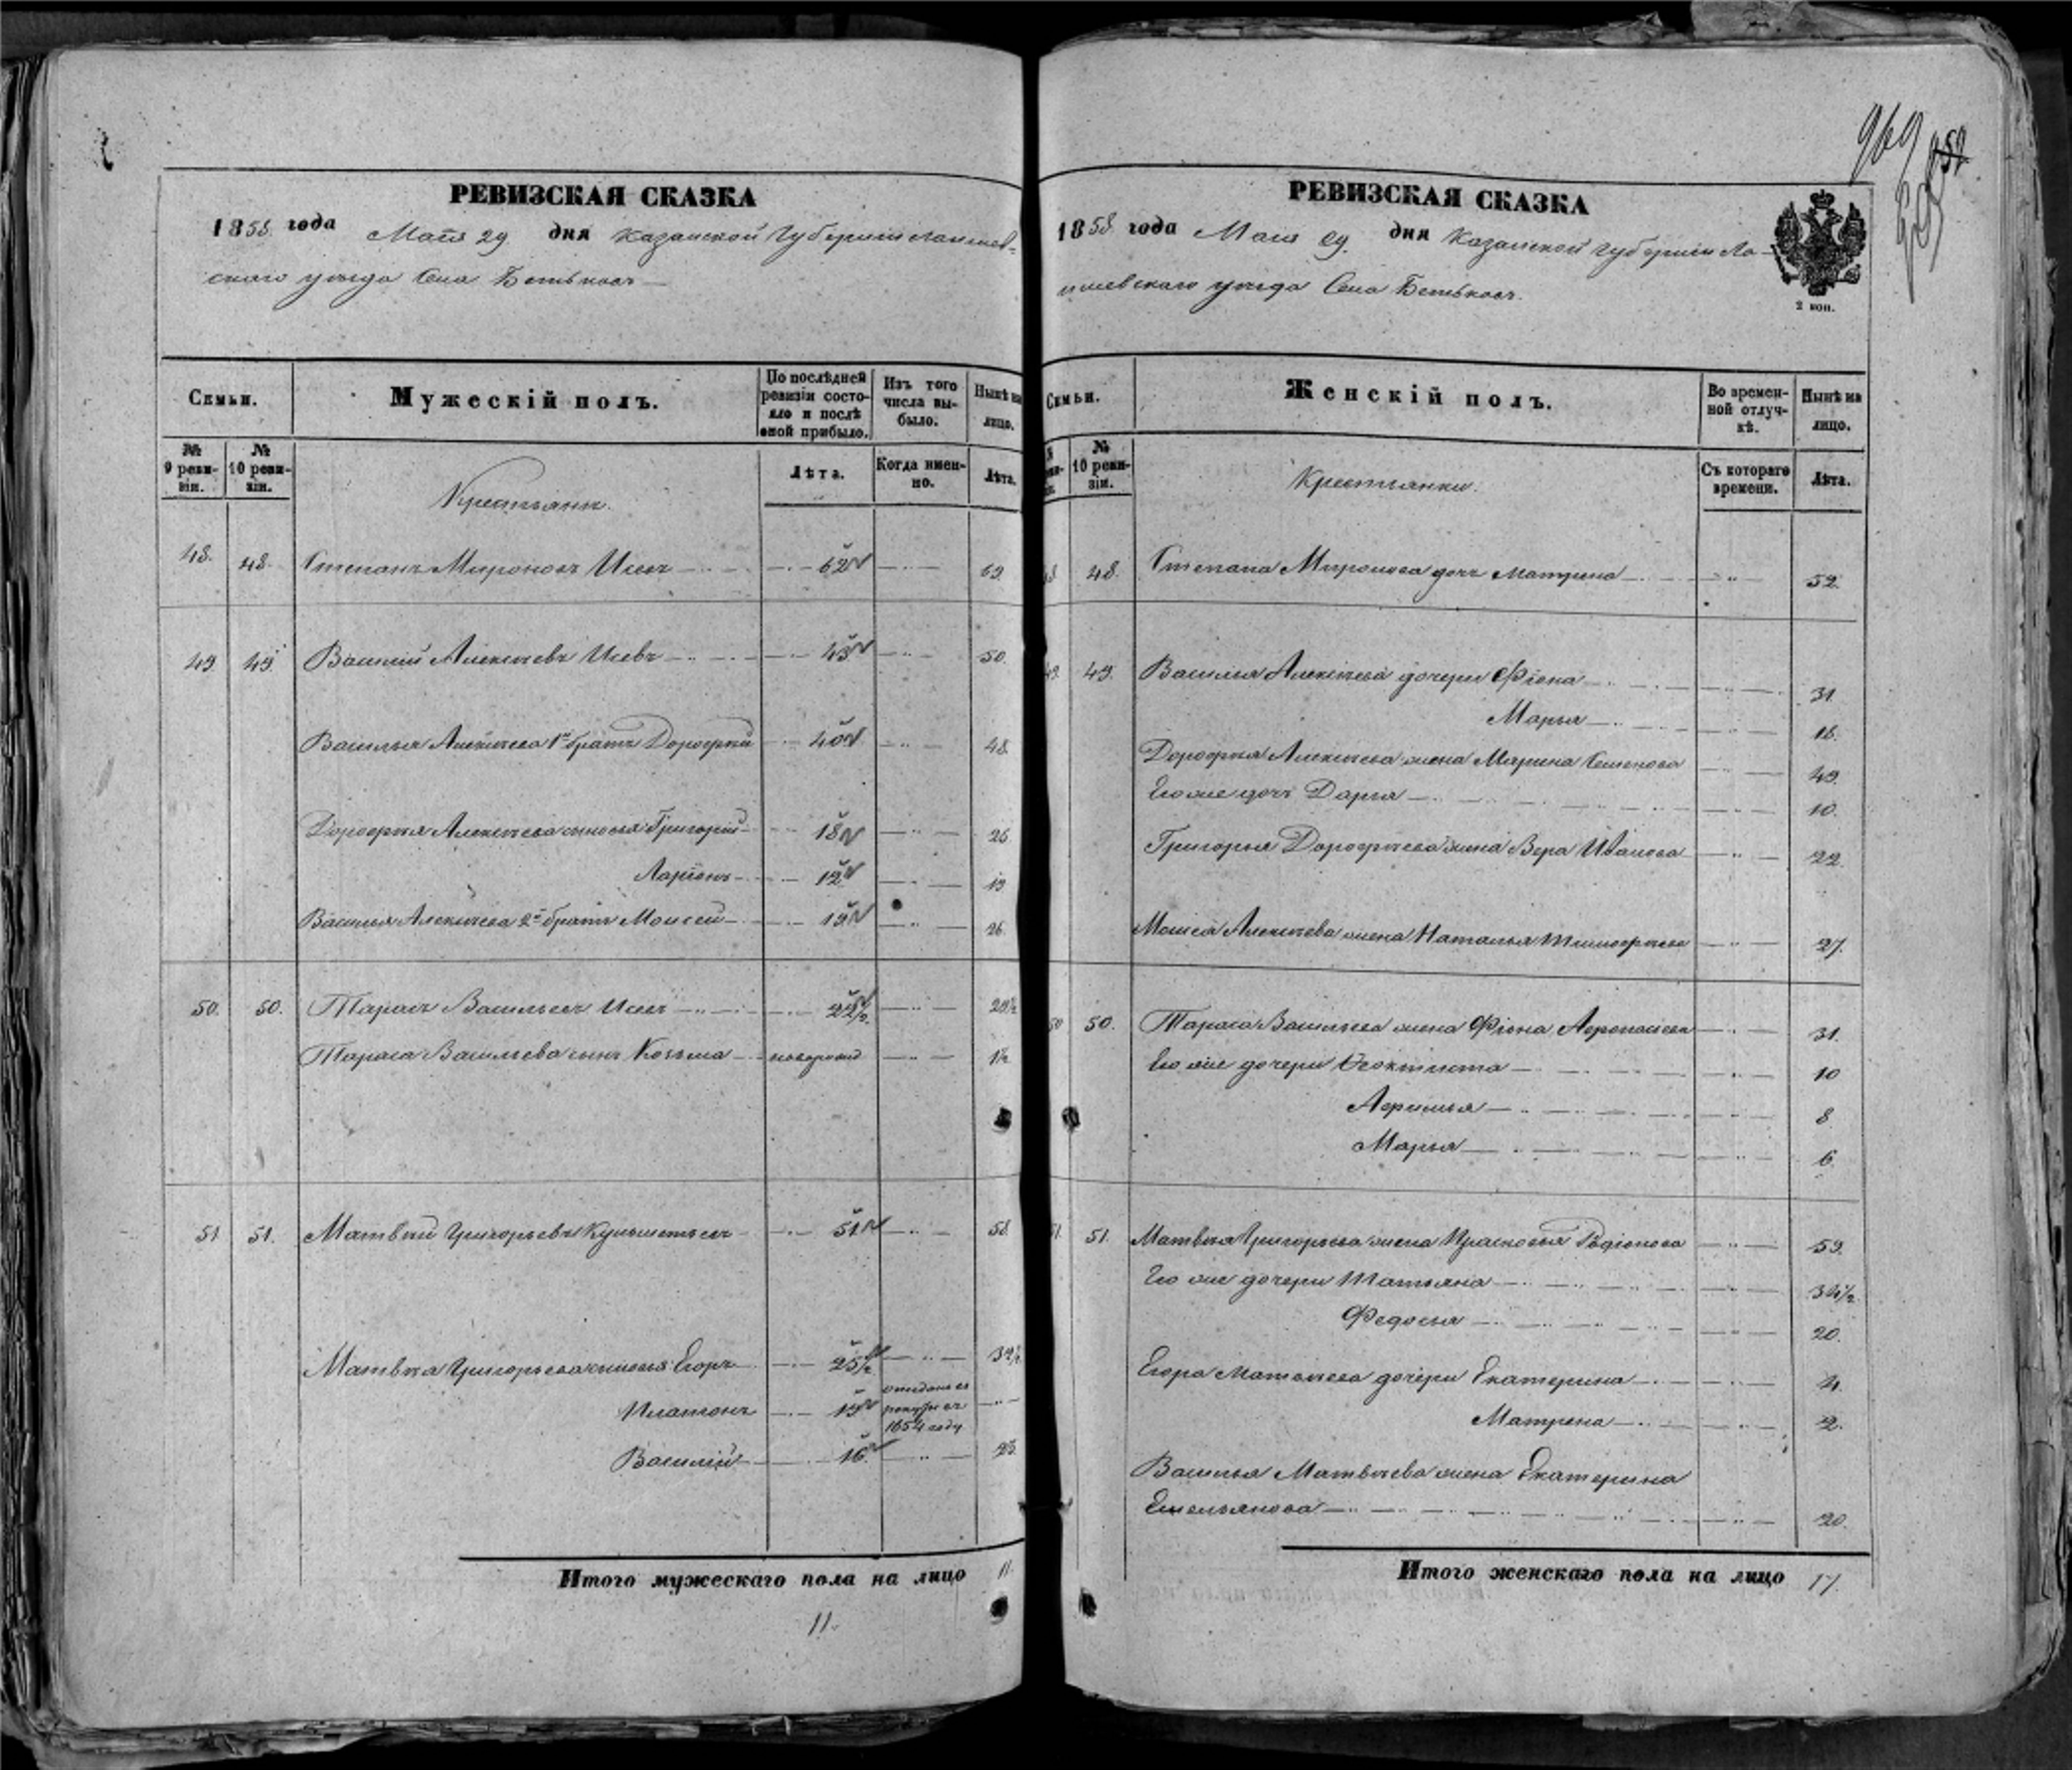 969
РЕВИЗСКАЯ СКАЗКА
1858 года Мая 29 дня Казанской Губернии Лаишев-
скаго уезда Села Бетьковъ
Семьи.
Мужескій полъ.
По послѣдней ревизіи состо-
яло и послѣ
оной прибыло.
Изъ того
числа вы-
было.
Нынѣ на
лицо.
№
9 реви-
зіи.
№
10 реви-
зіи.
Крестьяне
Лѣта.
Когда имен-
но.
Лѣта.
48. 48. Степанъ Мироновъ Исаевъ 62
49 49. Василій Алексѣевъ Исаевъ 43 50.
Василья Алексѣева 1й братъ Дорофей 40 48.
Дорофея Алексѣева сыновья Григорій 18 26
Ларіонъ 12 19
Василья Алексѣева 2й братъ Моисей 19 26.
50. 50. Тарасъ Васильевъ Исаевъ 22½ 29½
Тараса Васильева сынъ Козьма новорожд 1½
51 51. Матвей Григорьевъ 51 58.
Матвея Григорьева сыновья Егоръ 25½ 32½
Платонъ 19 отданъ въ
рекруты въ
1854 году
Василій 16. 23.
Итого мужескаго пола на лицо 11.
11.
РЕВИЗСКАЯ СКАЗКА
1858 года Мая 29 дня Казанской Губерніи Ла-
ишевскаго уезда Села Бетьковъ.
2 коп.
Семьи.
Женскій полъ.
Во времен-
ной отлуч-
кѣ.
Нынѣ на
лицо.
№
10 реви-
зіи.
Крестьянки.
Съ котораго
времени.
Лѣта.
48. Степана Миронова дочь Матрена 52.
49. Василья Алексѣева дочери Фіона 31.
Марья 18.
Дорофея Алексѣева жена Марина Семенова 49.
Его же дочь Дарья 10.
Григорья Дорофѣева жена Вера Иванова 22.
Моисея Алексѣева жена Наталья Тимофѣева 27.
50. Тараса Васильева жена Фіона Афонасьева 31.
Его же дочери Феоктиста 10
Афимья 8
Марья 6.
51. Матвея Григорьева жена Прасковья Родіонова 59.
Его же дочери Татьяна 34½
Федосья 20.
Егора Матвѣева дочери Екатерина 4.
Матрена 2.
Василья Матвѣева жена Екатерина
Емельянова 20.
Итого женскаго пола на лицо 17.